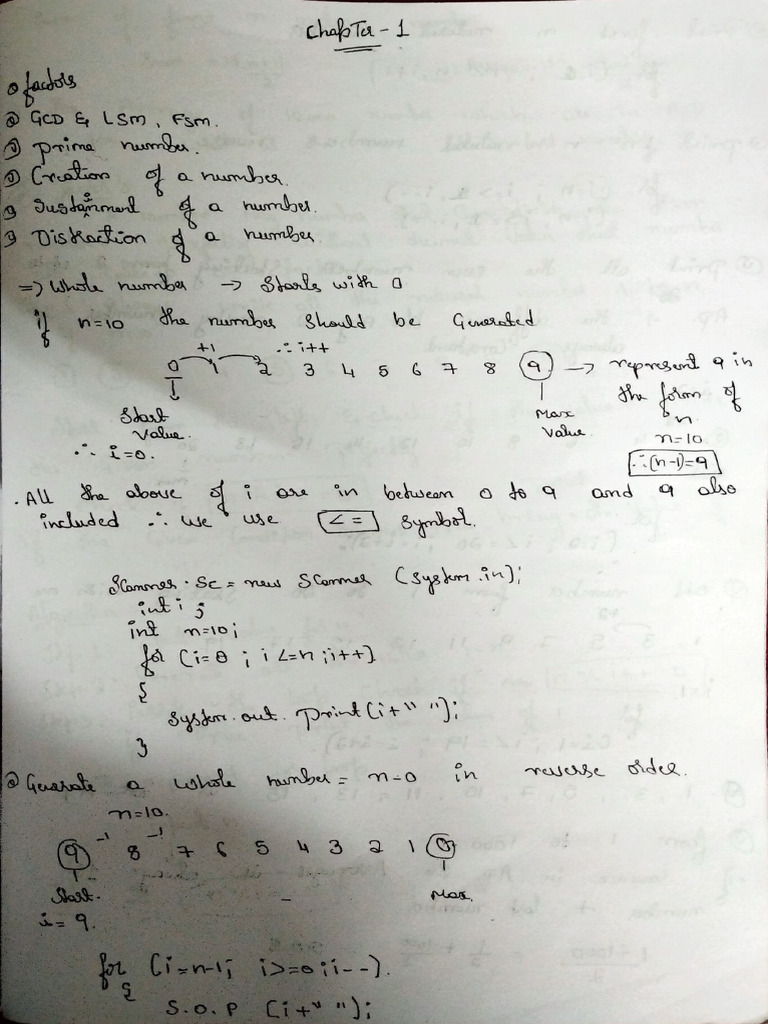 Chapter - 1
① factors
② GCD & LSM, FSM.
③ prime number.
④ Creation of a number.
⑤ Sustainment of a number.
⑥ Distraction of a number.
=> Whole number -> Starts with 0
if n=10 the number should be Generated
+1 ∴ i++
0 1 2 3 4 5 6 7 8 9 -> represent 9 in
the form of
Start Max n.
Value. Value. n=10.
∴ i=0. ∴(n-1)=9
. All the above of i are in between 0 to 9 and 9 also
included ∴ we use <= symbol.
Scanner. Sc = new Scanner (System.in);
int i ;
int n=10;
for (i=0 ; i <=n ; i++)
{
System.out. Print(i+" ");
}
② Generate a whole number = n-0 in reverse order.
n=10.
-1 -1
9 8 7 6 5 4 3 2 1 0
Start. Max.
i= 9.
for (i=n-1; i>=0; i--).
{
S.O.P (i+" ");